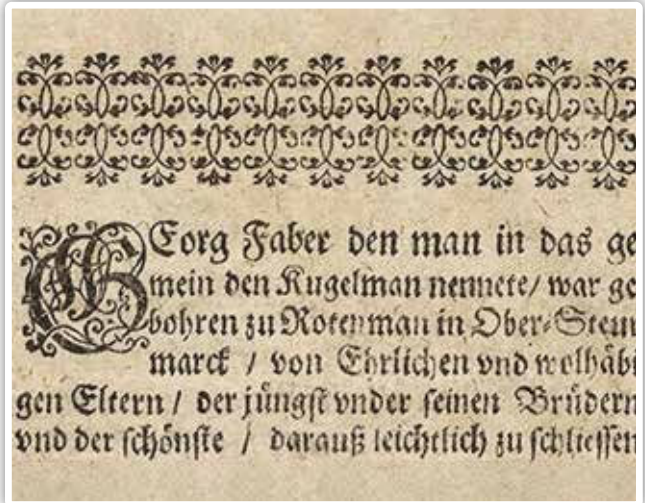 GEorg Faber den man in das ge
mein den Kugelman nennete/ war ge
bohren zu Rotenman in Ober-Steur
marck / von Ehrlichen vnd wolhäbi
gen Eltern / der jüngst vnder seinen Brüdern
vnd der schönste / darauß leichtlich zu schliessen